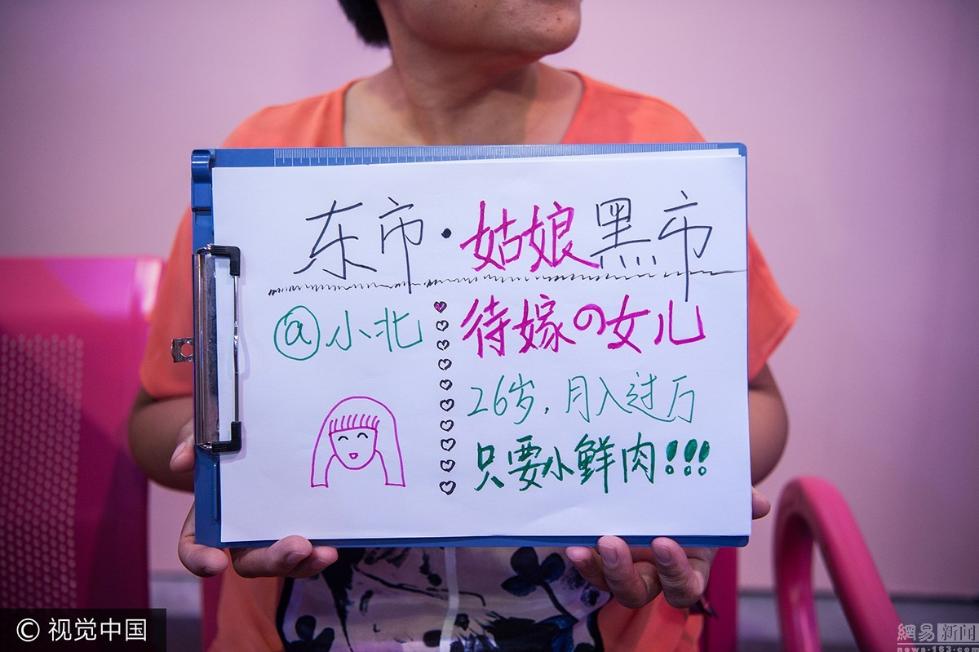 东市·姑娘黑市
@小北
待嫁の女儿
26岁,月入过万
只要小鲜肉!!!
© 视觉中国
網易新闻
news·163·com